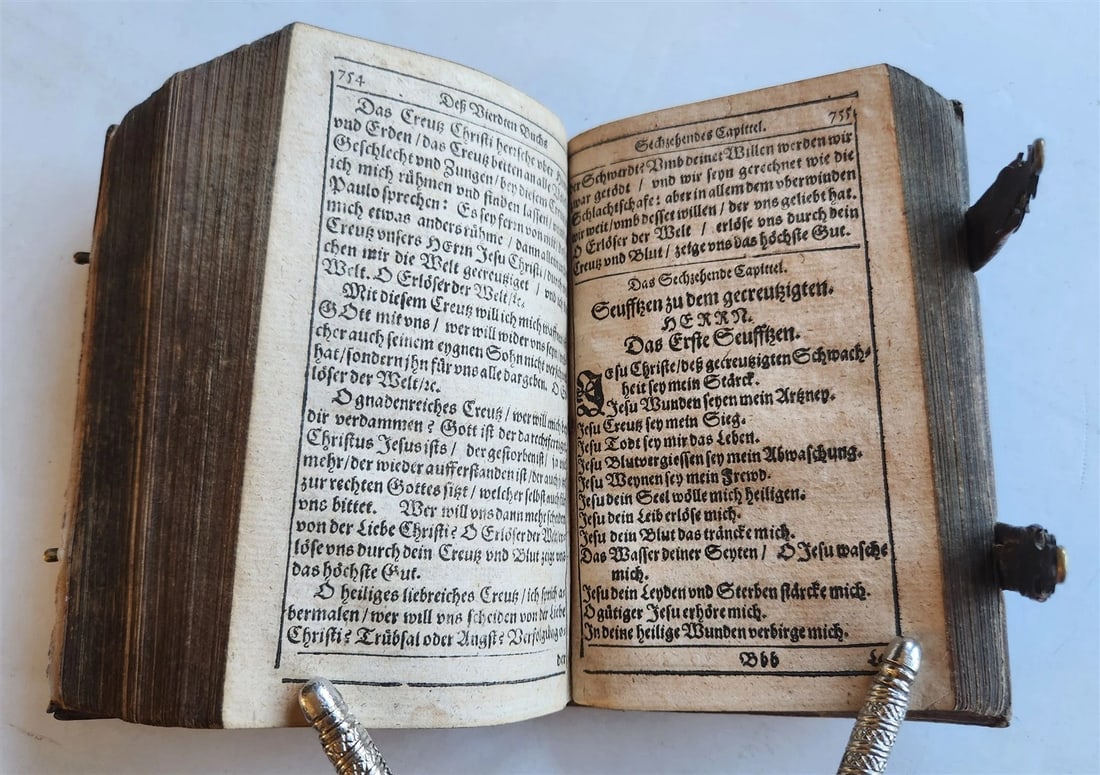 754
Deß Vierdten Buchs
Das Creutz Christi hersche vber
vnd Erden / das Creutz beten an alle
Geschlecht vnd Zungen / bey diesem
ich mich rühmen vnd finden lassen /
Paulo sprechen: Es sey fern von mir
mich etwas anders rühme / dann allein
Creutz vnsers HErrn Jesu Christi /
chen mir die Welt gecreutziget / vnd
Welt. O Erlöser der Welt / ꝛc.
Mit diesem Creutz will ich mich
GOtt mit vns / wer will wider vns seyn
cher auch seinem eygnen Sohn nicht
hat / sondern jhn für vns alle dargeben. O
löser der Welt / ꝛc.
O gnadenreiches Creutz / wer will mich
dir verdammen? Gott ist der da
Christus Jesus ists / der gestorben ist /
mehr / der wieder aufferstanden ist / der auch
zur rechten Gottes sitzt / welcher selbst auch
vns bittet. Wer will vns dann mehr
von der Liebe Christi? O Erlöser der
löse vns durch dein Creutz vnd Blut zeige
das höchste Gut.
O heiliges liebreiches Creutz / ich sprich
bermalen / wer will vns scheiden von der Liebe
Christi? Trübsal oder Angst?
Sechzehendes Capittel.
755
Schwerdt? Vmb deinet Willen werden wir
getödt / vnd wir seyn gerechnet wie die
Schlachtschafe: aber in allem dem vberwinden
wir weit / vmb desset willen / der vns geliebt hat.
O Erlöser der Welt / erlöse vns durch dein
Creutz vnd Blut / zeige vns das höchste Gut.
Das Sechzehende Capittel.
Seufftzen zu dem gecreutzigten
HERRN.
Das Erste Seufftzen.
Jesu Christe / deß gecreutzigten Schwach-
heit sey mein Stärck.
Jesu Wunden seyen mein Artzney.
Jesu Creutz sey mein Sieg.
Jesu Todt sey mir das Leben.
Jesu Blutvergiessen sey mein Abwaschung.
Jesu Weynen sey mein Frewd.
Jesu dein Seel wölle mich heiligen.
Jesu dein Leib erlöse mich.
Jesu dein Blut das träncke mich.
Das Wasser deiner Seyten / O Jesu wasche
mich.
Jesu dein Leyden vnd Sterben stärcke mich.
O gütiger Jesu erhöre mich.
In deine heilige Wunden verbirge mich.
Bbb